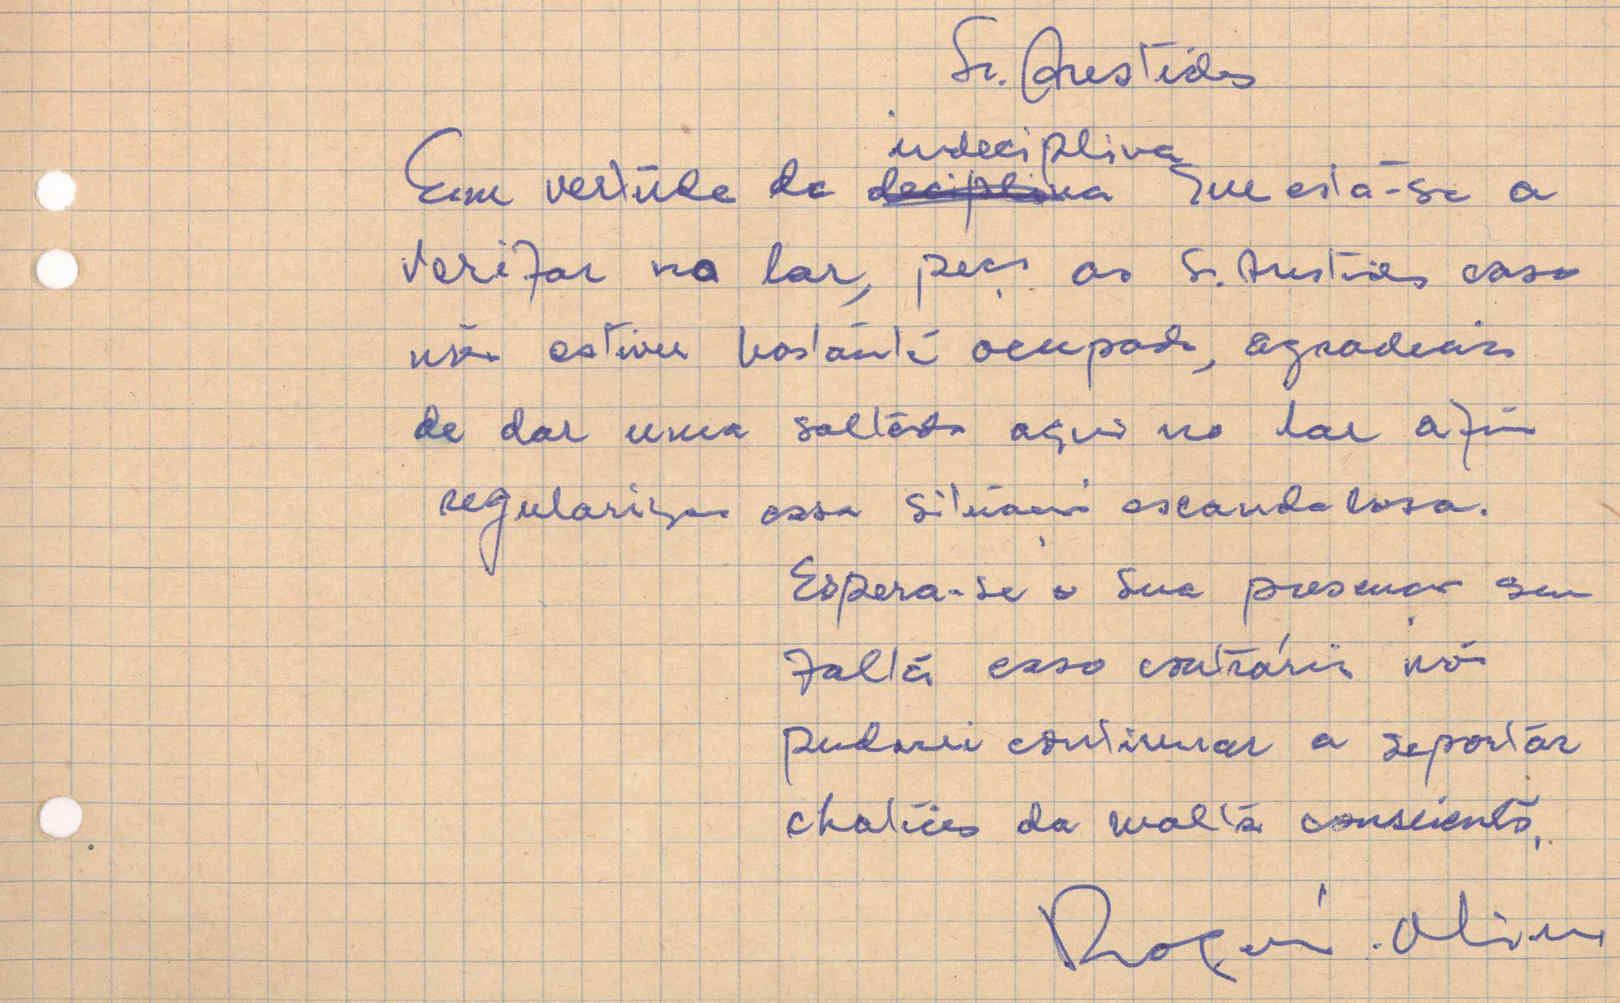 Sr. Arestides
indeciplina
Em vertude da deciplina que está-se a
verifar no lar, peço ao Sr. Arestides caso
não estiver bastante ocupado, agradecia
de dar uma saltada aqui no lar afim
regularizar essa situação escandalosa.
Espera-se a sua presença sem
falta caso contrário não
puderei continuar a suportar
chatices da malta consciente.